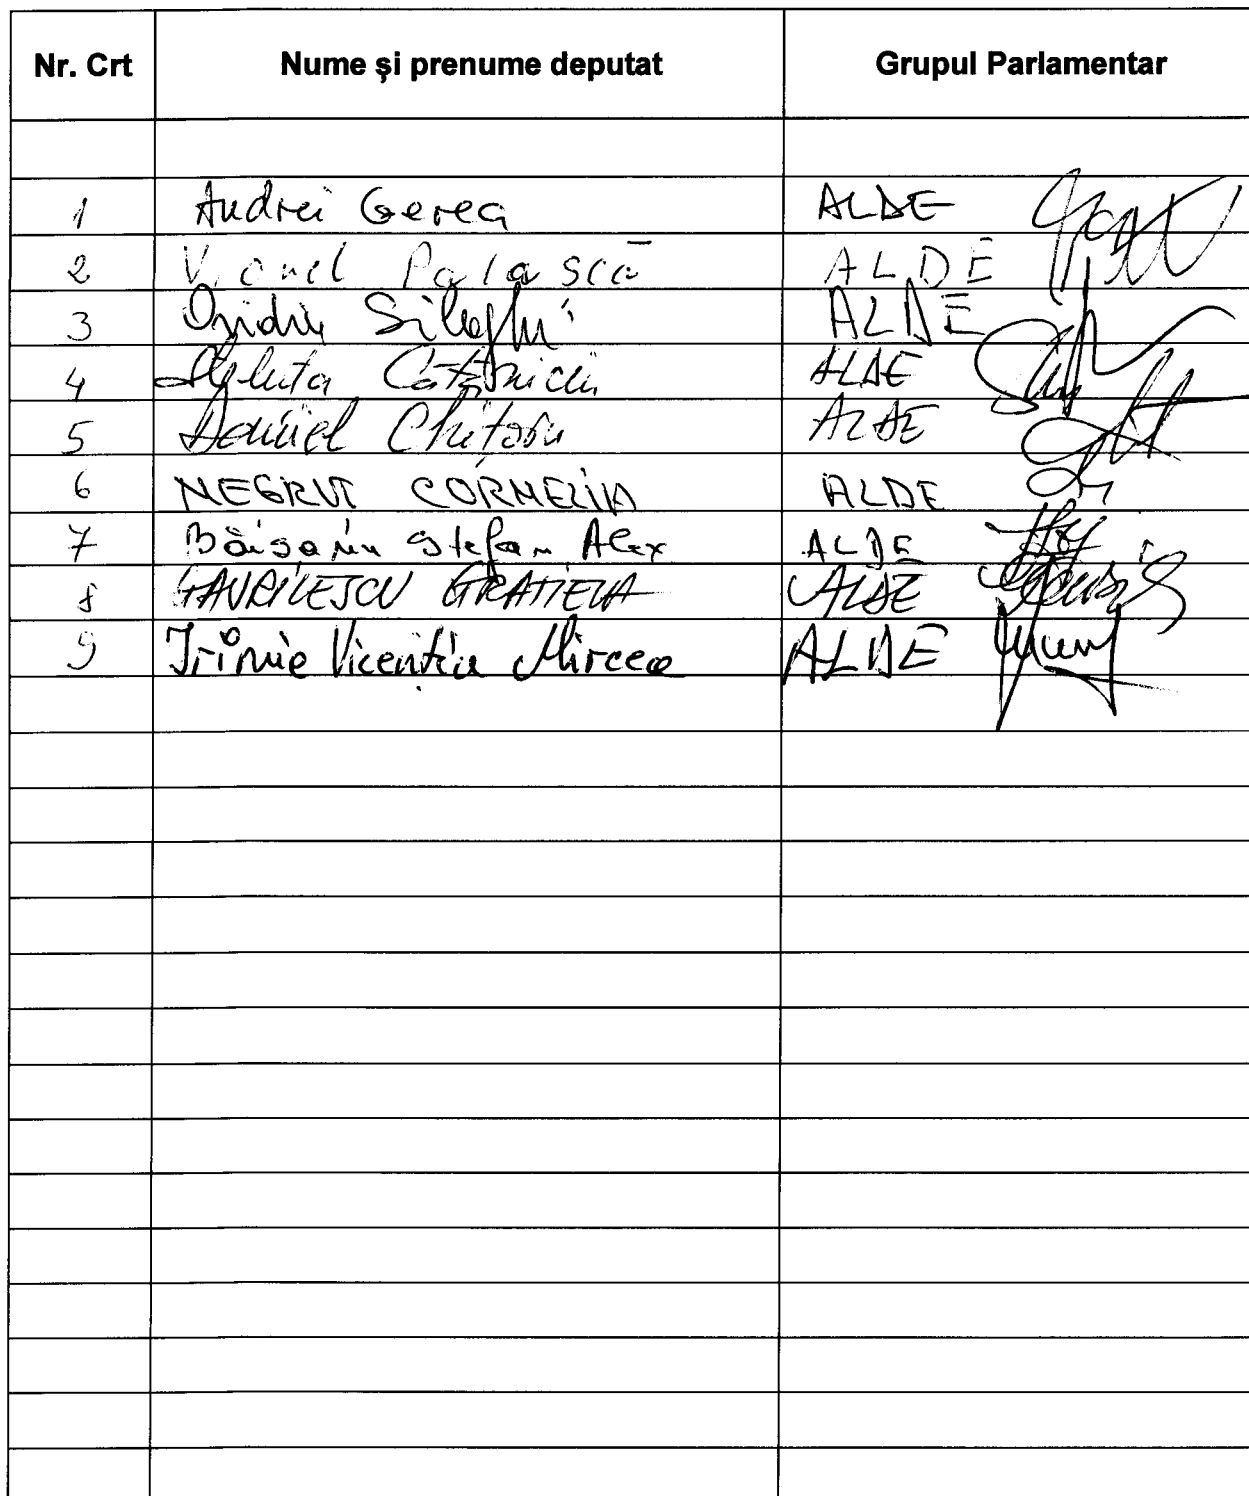 Nr. Crt Nume și prenume deputat Grupul Parlamentar
1 Andrei Gerea ALDE
2 Viorel Palașcă ALDE
3 Ovidiu Silaghi ALDE
4 Steluta Cătăniciu ALDE
5 Daniel Chițoiu ALDE
6 NEGRUT CORNELIA ALDE
7 Băișanu Stefan Alex ALDE
8 GAVRILESCU GRATIELA ALDE
9 Irimie Vicențiu Mircea ALDE